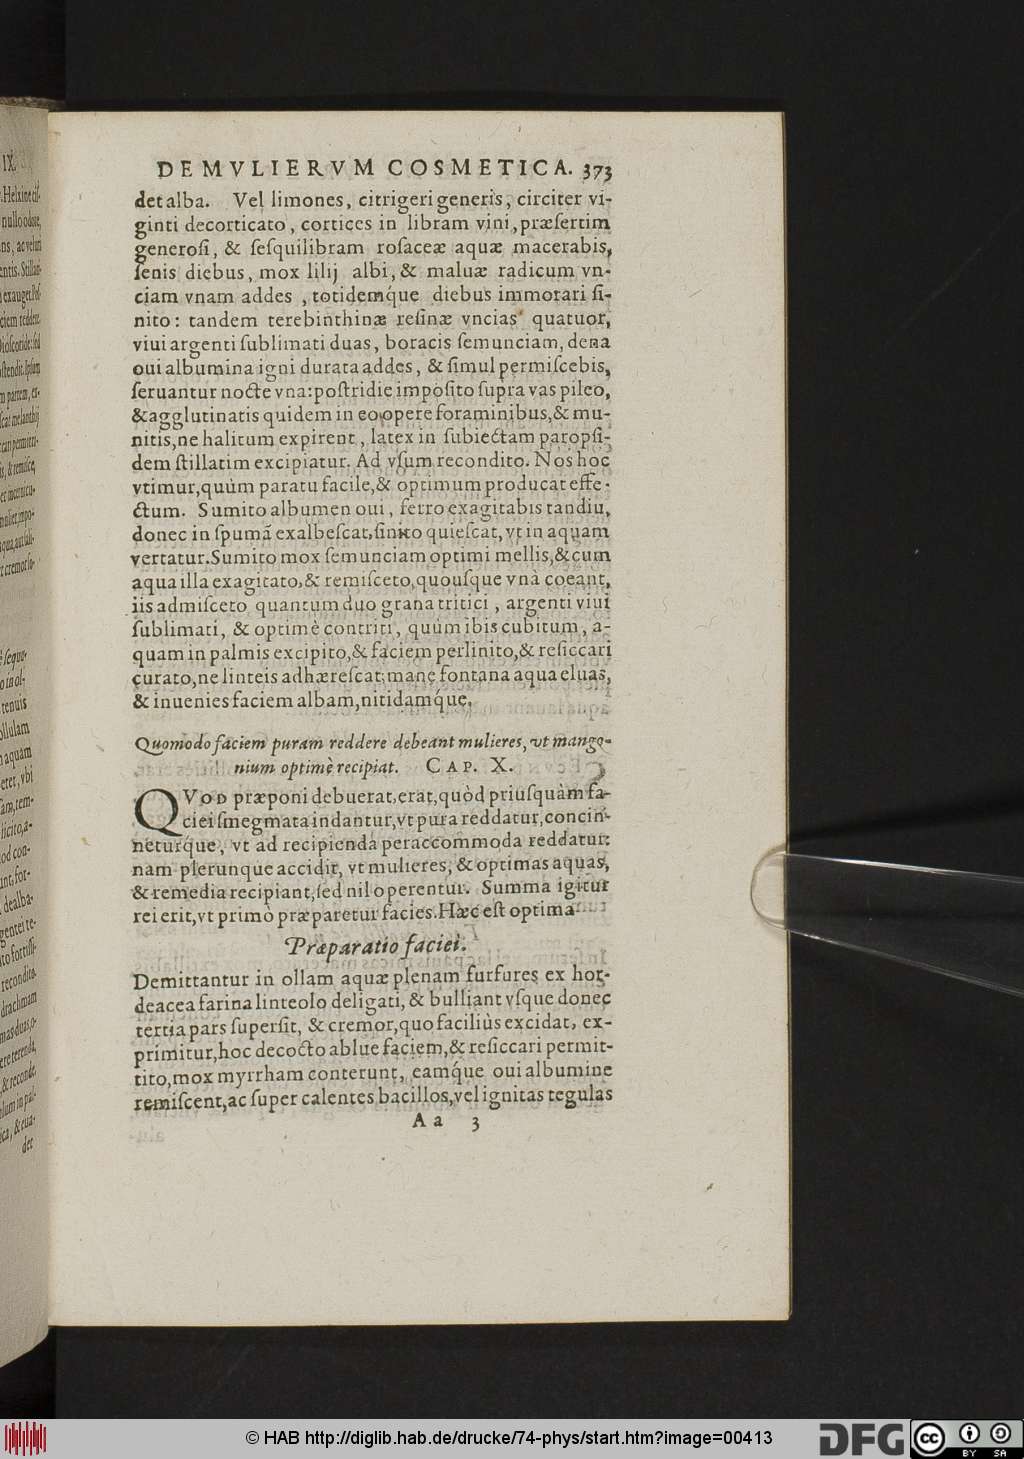 DE MVLIERVM COSMETICA. 373
det alba. Vel limones, citrigeri generis, circiter vi-
ginti decorticato, cortices in libram vini, præſertim
generoſi, & ſeſquilibram roſaceæ aquæ macerabis,
ſenis diebus, mox lilij albi, & maluæ radicum vn-
ciam vnam addes, totidemq́ue diebus immorari ſi-
nito: tandem terebinthinæ reſinæ vncias quatuor,
viui argenti ſublimati duas, boracis ſemunciam, dena
oui albumina igni durata addes, & ſimul permiſcebis,
ſeruantur nocte vna: poſtridie impoſito ſupra vas pileo,
& agglutinatis quidem in eo opere foraminibus, & mu-
nitis, ne halitum expirent, latex in ſubiectam paropſi-
dem ſtillatim excipiatur. Ad vſum recondito. Nos hoc
vtimur, quùm paratu facile, & optimum producat effe-
ctum. Sumito albumen oui, ferro exagitabis tandiu,
donec in ſpumã exalbeſcat, ſinito quieſcat, vt in aquam
vertatur. Sumito mox ſemunciam optimi mellis, & cum
aqua illa exagitato, & remiſceto, quouſque vnà coeant,
iis admiſceto quantum duo grana tritici, argenti viui
ſublimati, & optimè contriti, quùm ibis cubitum, a-
quam in palmis excipito, & faciem perlinito, & reſiccari
curato, ne linteis adhæreſcat; mane fontana aqua eluas,
& inuenies faciem albam, nitidamq́ue.
Quomodo faciem puram reddere debeant mulieres, vt mango-
nium optimè recipiat. CAP. X.
QVOD præponi debuerat, erat, quòd priuſquàm fa-
ciei ſmegmata indantur, vt pura reddatur, concin-
neturq́ue, vt ad recipienda peraccommoda reddatur:
nam plerunque accidit, vt mulieres, & optimas aquas,
& remedia recipiant, ſed nil operentur. Summa igitur
rei erit, vt primò præparetur facies. Hæc eſt optima
Præparatio faciei.
Demittantur in ollam aquæ plenam furfures ex hor-
deacea farina linteolo deligati, & bulliant vſque donec
tertia pars ſuperſit, & cremor, quo faciliùs excidat, ex-
primitur, hoc decocto ablue faciem, & reſiccari permit-
tito, mox myrrham conterunt, eamq́ue oui albumine
remiſcent, ac ſuper calentes bacillos, vel ignitas tegulas
Aa 3
© HAB http://diglib.hab.de/drucke/74-phys/start.htm?image=00413
DFG
cc BY SA